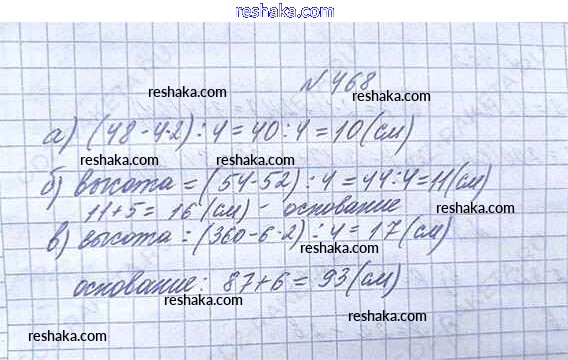 reshaka.com
№ 468
reshaka.com
reshaka.com
а) (48 - 4·2) : 4 = 40 : 4 = 10 (см)
reshaka.com
reshaka.com
б) высота = (54 - 52) : 4 = 44 : 4 = 11 (см)
11 + 5 = 16 (см) - основание
reshaka.com
reshaka.com
в) высота = (360 - 6·2) : 4 = 17 (см)
reshaka.com
основание: 87 + 6 = 93 (см)
reshaka.com
reshaka.com
reshaka.com
reshaka.com